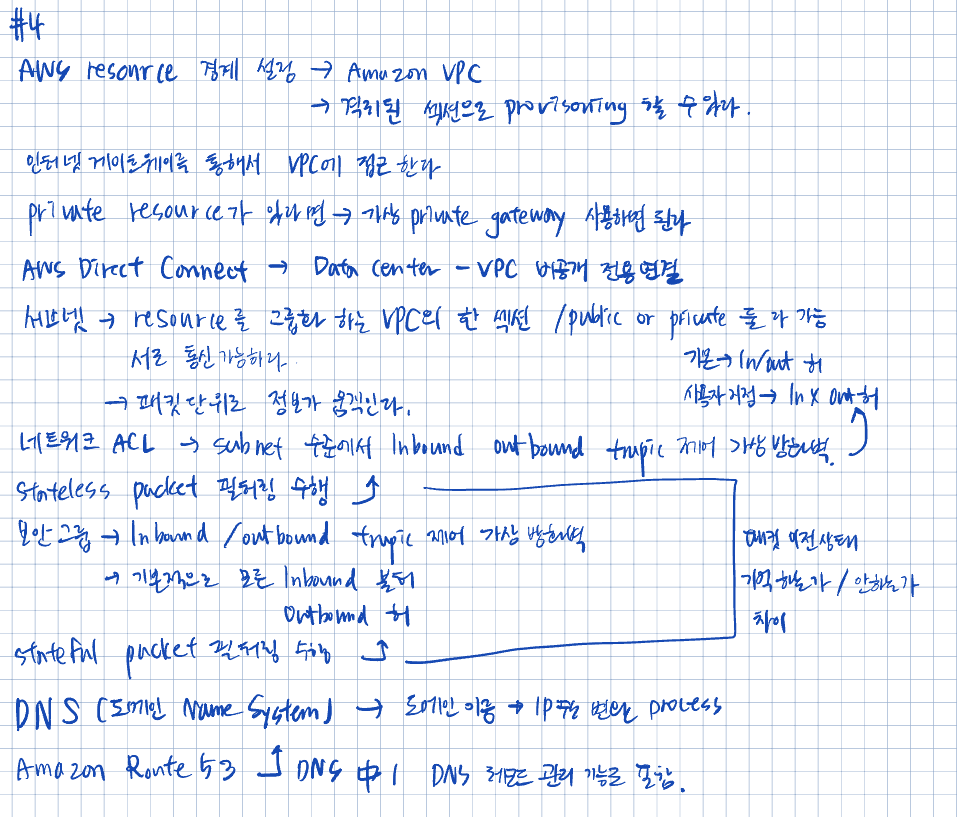 #4
AWS resource 경계 설정 → Amazon VPC
→ 격리된 섹션으로 provisoning 할 수 있다.
인터넷 게이트웨이를 통해서 VPC에 접근 한다
private resource가 있다면 → 가상 private gateway 사용하면 된다
AWS Direct Connect → Data center - VPC 비공개 전용 연결
서브넷 → resource를 그룹화 하는 VPC의 한 섹션 / public or private 둘 다 가능
서로 통신 가능하다.
→ 패킷 단위로 정보가 움직인다.
기본 → In/out 허
사용자 지정 → In X out 허
네트워크 ACL → subnet 수준에서 Inbound outbound trapic 제어 가상 방화벽.
stateless packet 필터링 수행
보안그룹 → Inbound / outbound trapic 제어 가상 방화벽
→ 기본적으로 모든 Inbound 불허
Outbound 허
stateful packet 필터링 수행
패킷 이전 상태
기억 하는가 / 안하는가
차이
DNS (도메인 Name System) → 도메인 이름 → IP주소 변환 process
Amazon Route 53 DNS 中 1 DNS 레코드 관리 기능도 포함.